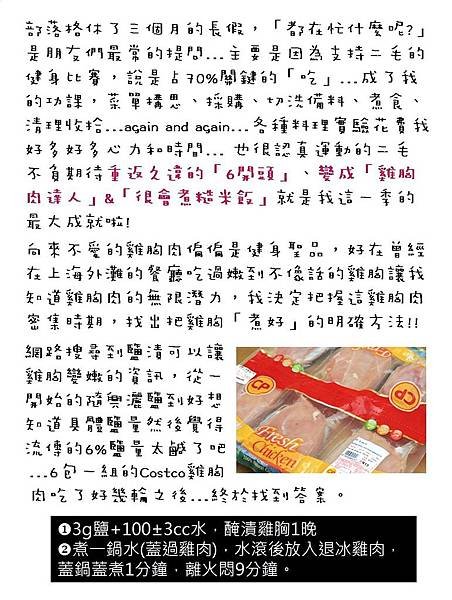 部落格休了三個月的長假，「都在忙什麼呢?」
是朋友們最常的提問...主要是因為支持二毛的
健身比賽，說是占70%關鍵的「吃」...成了我
的功課，菜單構思、採購、切洗備料、煮食、
清理收拾...again and again...各種料理實驗花費我
好多好多心力和時間... 也很認真運動的二毛
不負期待重返久違的「6開頭」、變成「雞胸
肉達人」&「很會煮糙米飯」就是我這一季的
最大成就啦!
向來不愛的雞胸肉偏偏是健身聖品，好在曾經
在上海外灘的餐廳吃過嫩到不像話的雞胸讓我
知道雞胸肉的無限潛力，我決定把握這雞胸肉
密集時期，找出把雞胸「煮好」的明確方法!!
網路搜尋到鹽漬可以讓
雞胸變嫩的資訊，從一
開始的隨興灑鹽到好想
知道具體鹽量然後覺得
流傳的6%鹽量太鹹了吧
...6包一組的Costco雞胸
肉吃了好幾輪之後...終於找到答案。
CP
CP
Fresh
Chicken
❶3g鹽+100±3cc水，醃漬雞胸1晚
❷煮一鍋水(蓋過雞肉)，水滾後放入退冰雞肉，
蓋鍋蓋煮1分鐘，離火悶9分鐘。